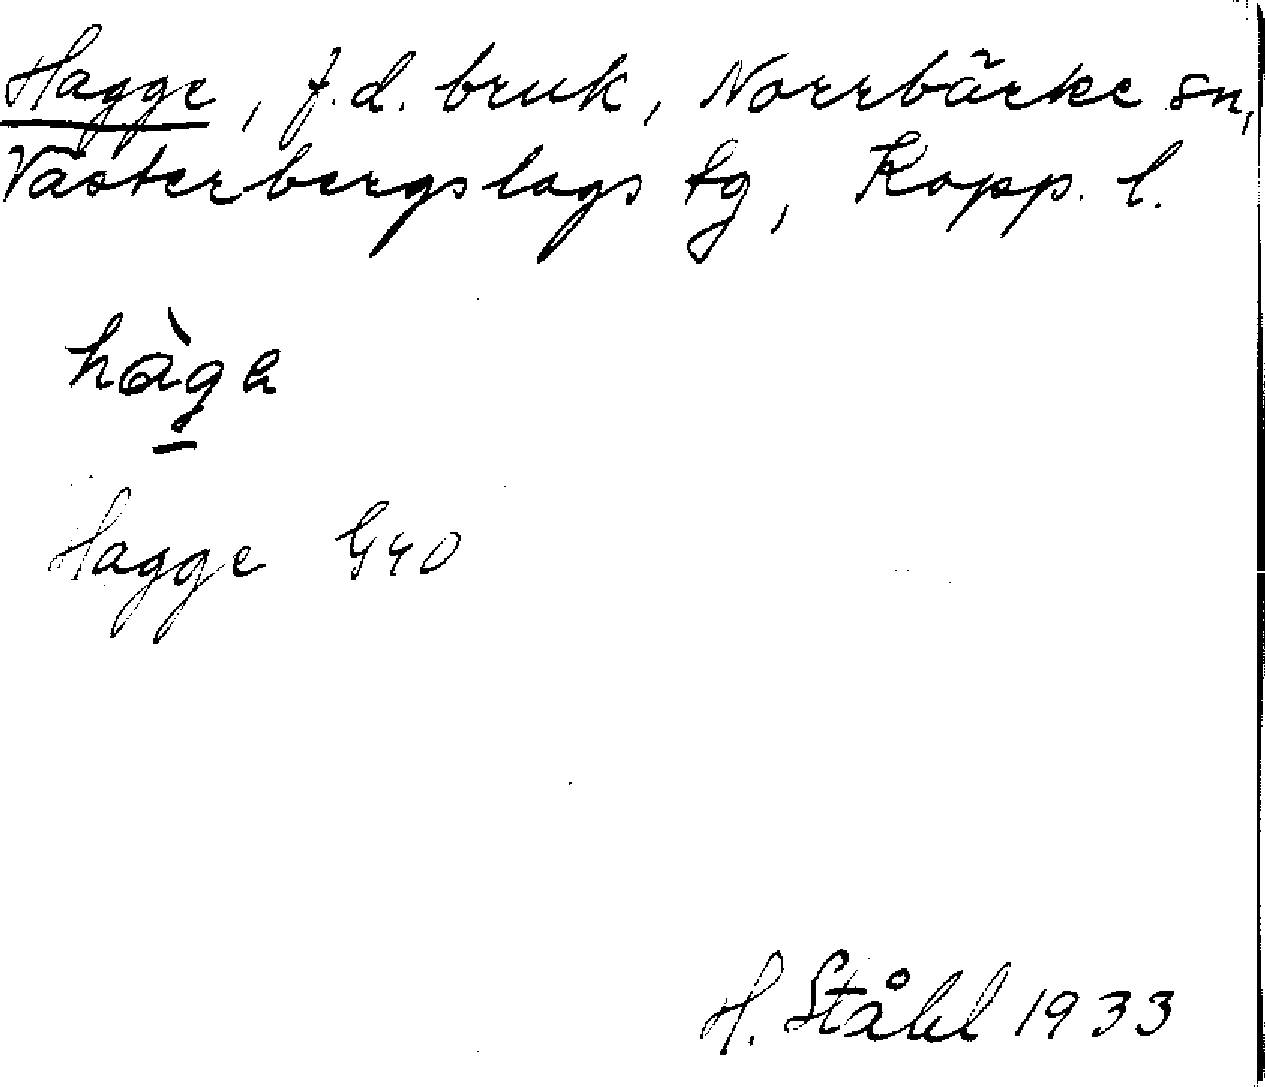 Hagge, f.d. bruk, Norrbärke sn,
Västerbergslags tg, Kopp. l.
hàga
Hagge G40
H. Ståhl 1933